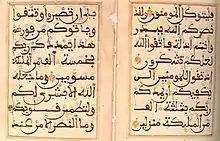 فليتوكل المومنون ولقد
نصركم الله ببدر و
انتم اذلة فاتقوا الله
لعلكم تشكرون اذ
تقول للمومنين الن
يكفيكم ان يمدكم
ربكم بثلثة الف
من الملئكة منزلين
بلى ان تصبروا وتتقوا
وياتوكم من فورهم
هذا يمددكم ربكم
بخمسة الف من الملئكة
مسومين وما جعله
الله الا بشرى لكم
ولتطمئن قلوبكم به
وما النصر الا من عند